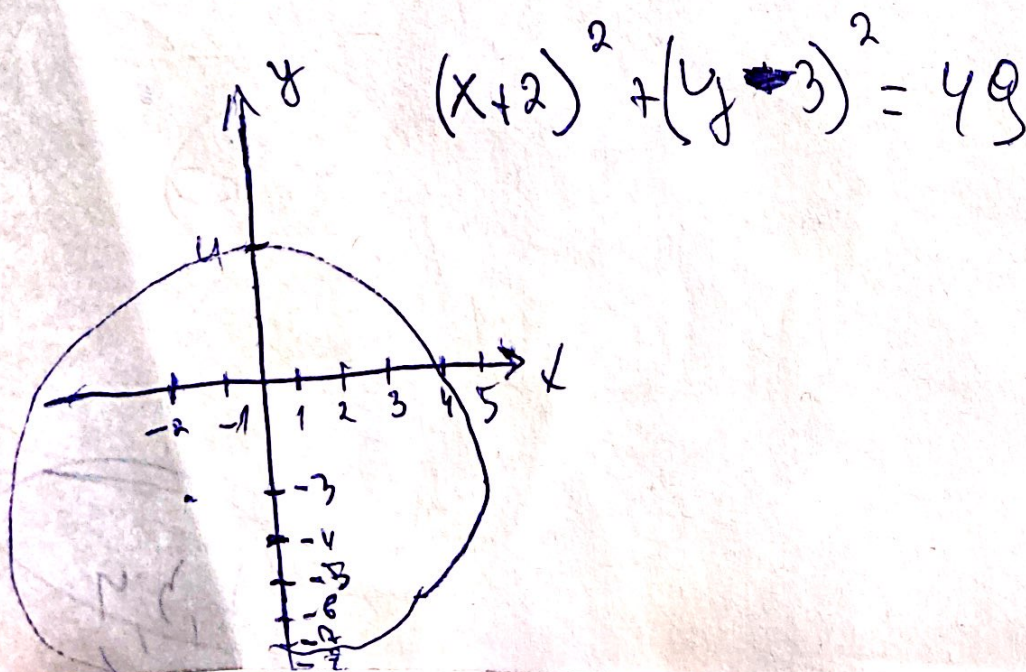 y
(x+2)² + (y-3)² = 49
4
x
-2 -1 1 2 3 4 5
-3
-4
-5
-6
-7